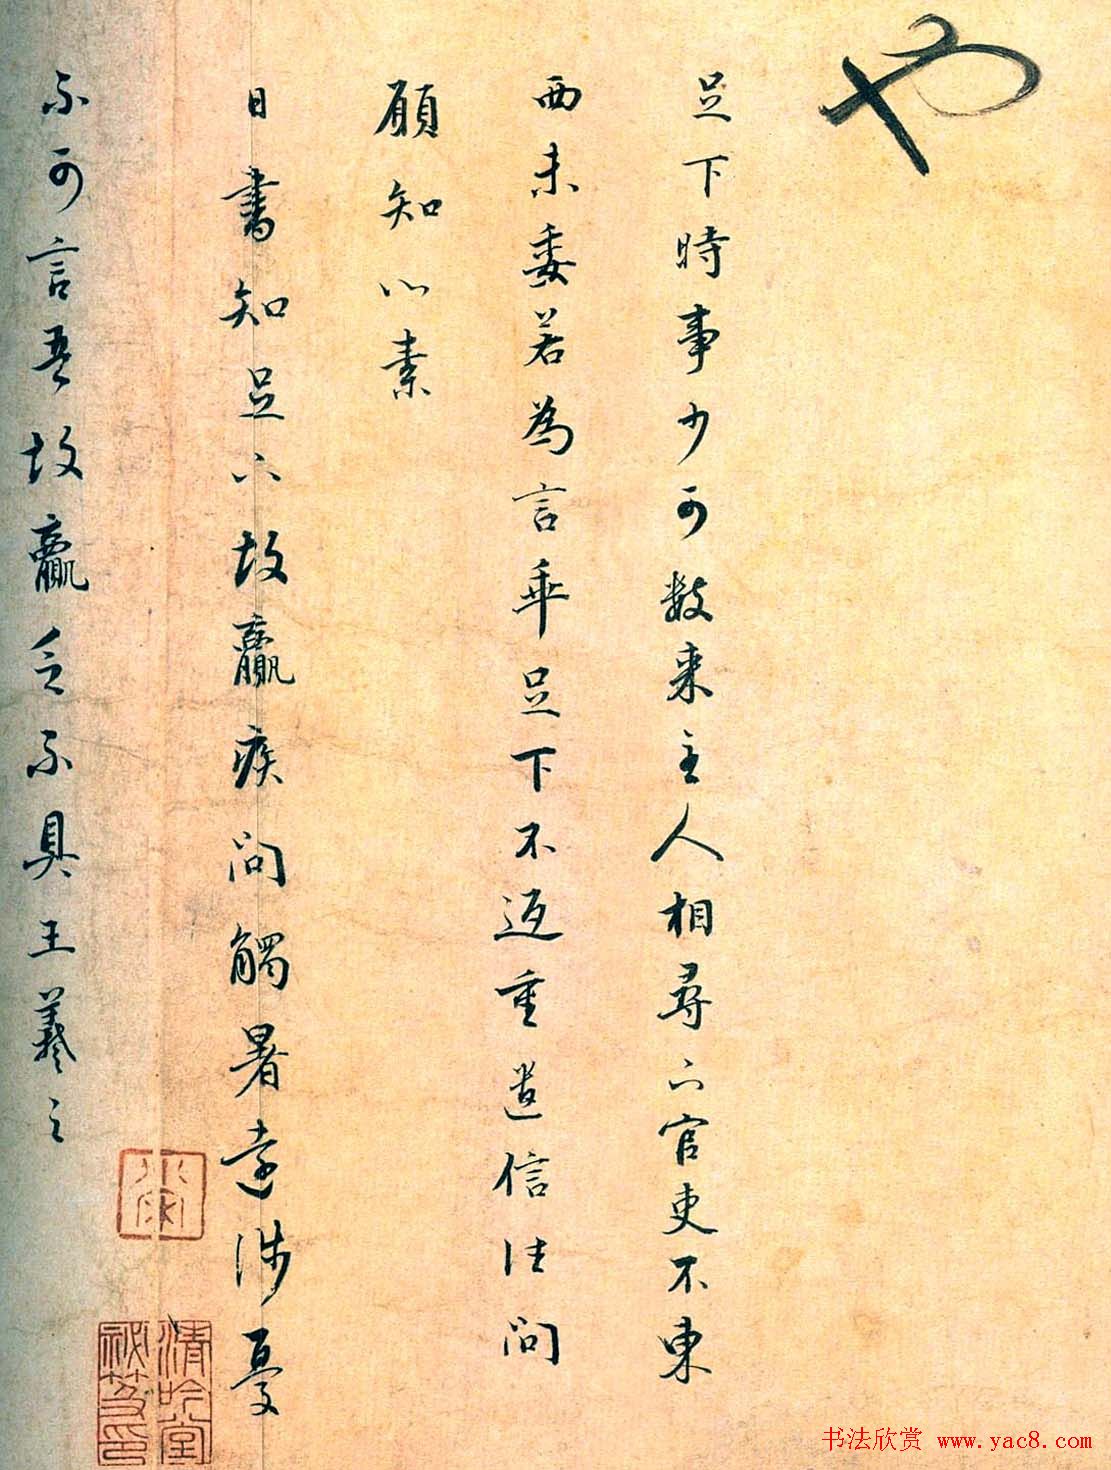 也
足下時事少可數来主人相尋下官吏不東
西未委若為言乖足下不返重遣信往問
願知心素
日書知足下故羸疾問觸暑遠涉憂
不可言吾故羸乏不具王羲之
清吟堂
秘笈印
书法欣赏 www.yac8.com